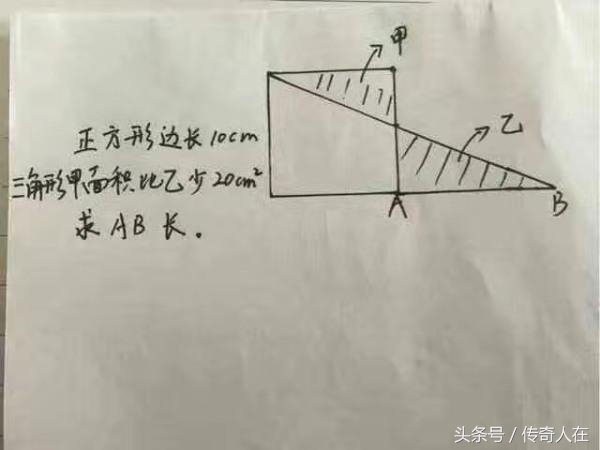 甲
乙
正方形边长10cm
三角形甲面积比乙少20cm²
求AB长.
A
B
头条号/传奇人在